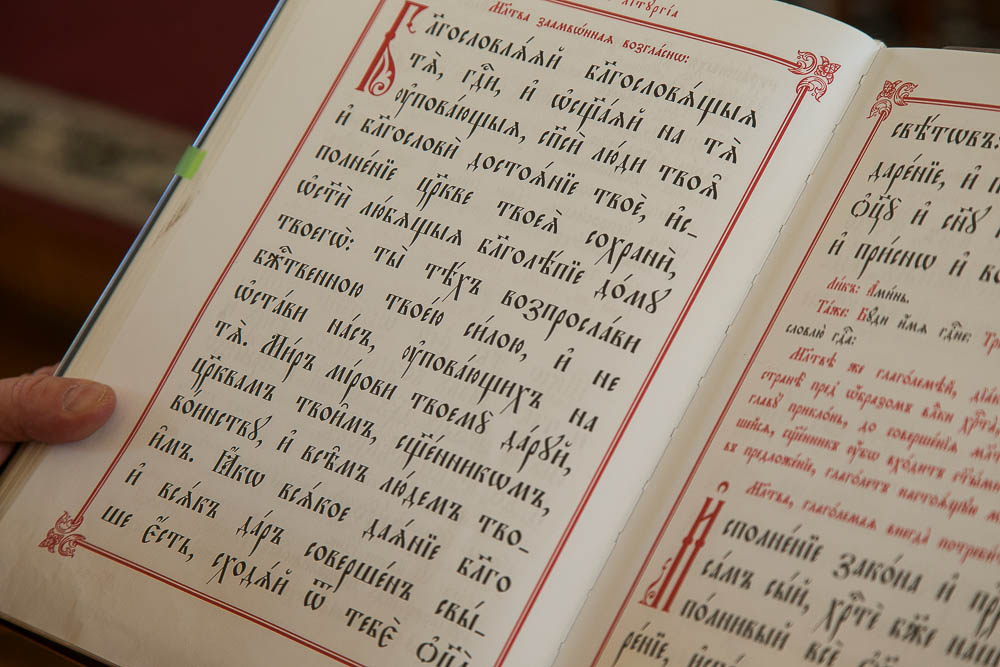 лїтꙋргі́а
Мл҃тва заамвѡ́нная возгла́снѡ:
Бл҃гословлѧ́ѧй бл҃гословѧ́щыѧ
тѧ̀, гдⷭ҇и, и҆ ѡ҆сщ҃а́ѧй на тѧ̀
ᲂу҆пова́ющыѧ, сп҃сѝ лю́ди твоѧ̑
и҆ бл҃гословѝ достоѧ́нїе твоѐ, и҆с-
полне́нїе цр҃кве твоеѧ̀ сохранѝ,
ѡ҆ст҃ѝ лю́бѧщыѧ бл҃голѣ́пїе до́мꙋ
твоегѡ̀: ты̀ тѣ́хъ возпросла́ви
бж҃твенною твое́ю си́лою, и҆ не
ѡ҆ста́ви на́съ, ᲂу҆пова́ющихъ на
тѧ̀. Ми́ръ мі́рови твоемꙋ̀ да́рꙋй,
цр҃квамъ твои̑мъ, сщ҃е́нникѡмъ,
во́инствꙋ, и҆ всѣ̑мъ лю́демъ тво-
и̑мъ. Ꙗ҆́кѡ всѧ́кое даѧ́нїе бл҃го
и҆ всѧ́къ да́ръ соверше́нъ свы́-
ше є҆́сть, сходѧ́й ѿ тебє̀ ѻ҆ц҃а̀
свѣ́тѡвъ:
даре́нїе, и҆
ѻ҆ц҃ꙋ̀ и҆ сн҃ꙋ
и҆ при́снѡ и҆
Ли́къ: А҆ми́нь.
Та́же: Бꙋ́ди и҆́мѧ гдⷭ҇не:
словлю̀ гдⷭ҇а:
Мл҃твѣ же глаго́лемѣй,
странѣ̀ пред ѡ҆́бразомъ влⷣки хрⷭ҇та̀,
главꙋ̀ прикло́нь, до соверше́нїѧ
щейсѧ, сщ҃е́нникъ ᲂу҆́бѡ вхо́дитъ ст҃ы́ми
въ предложе́нїе, глаго́летъ настоѧ́щꙋю
Мл҃тва, глаго́лемаѧ внегда̀ потреби́ти
И҆сполне́нїе зако́на и҆
са́мъ сы́й, хрⷭ҇тѐ бж҃е на́шъ
по́лнивый всѐ
ре́нїе,